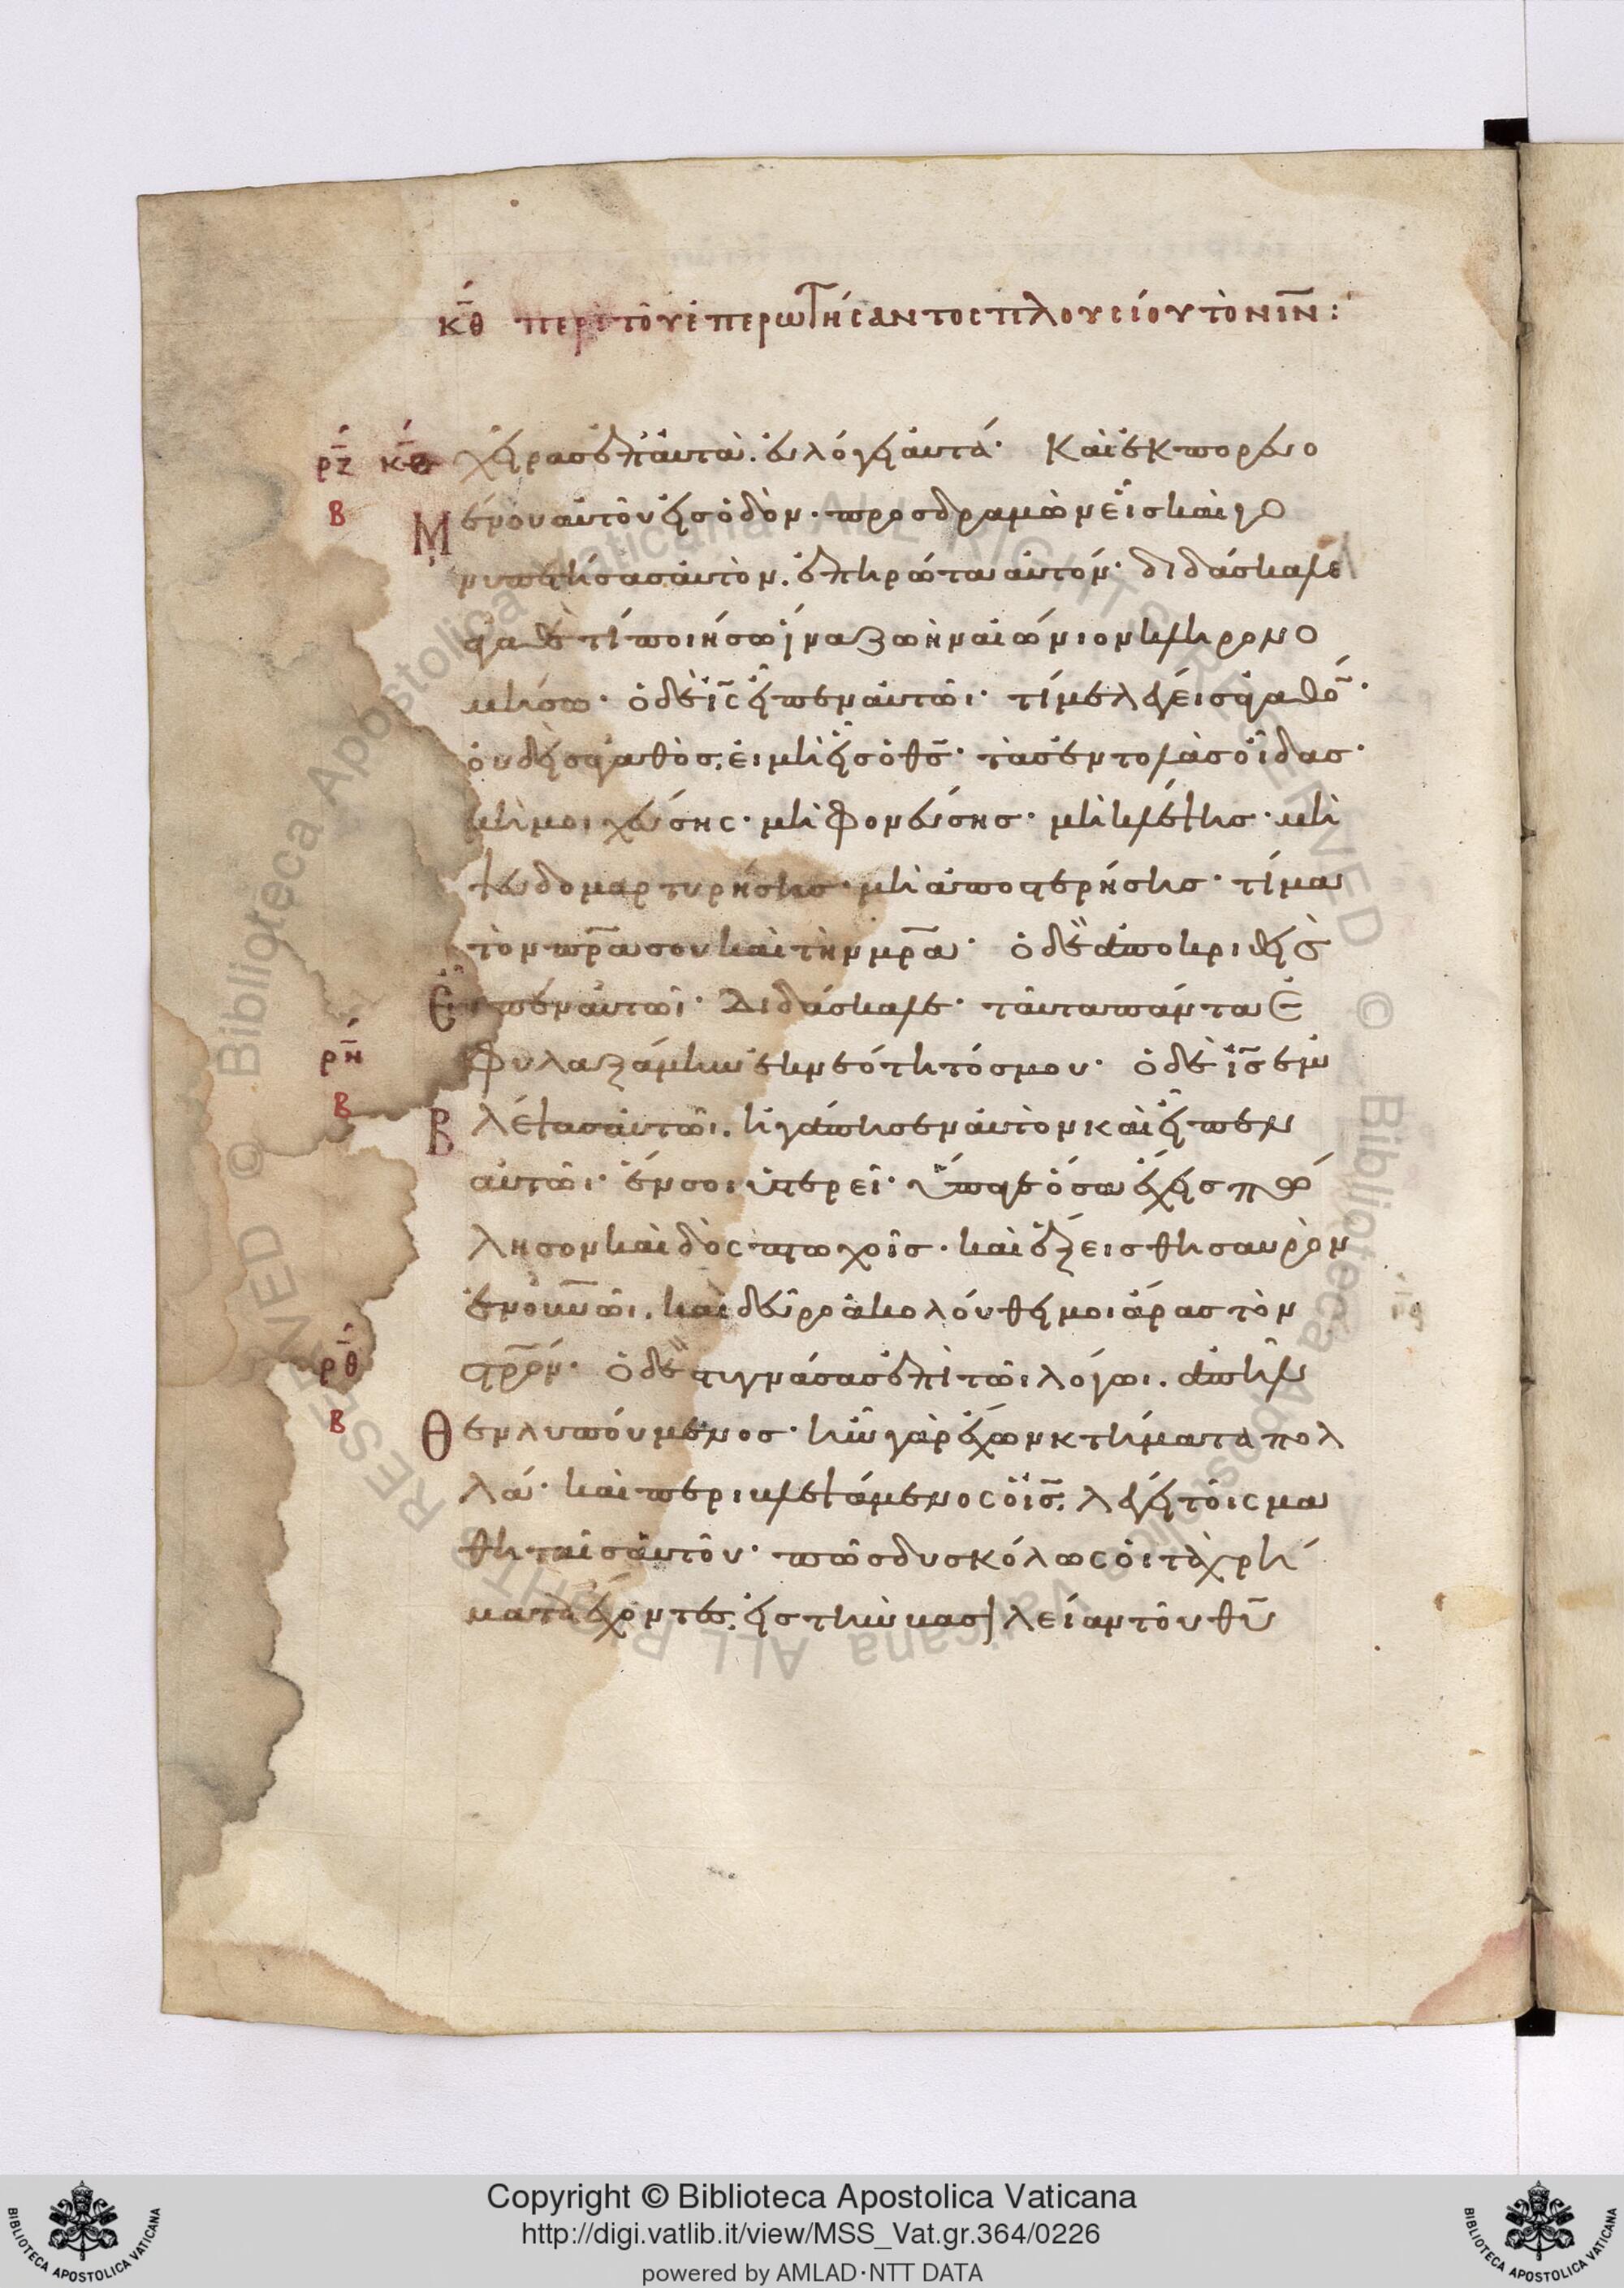 κθ περὶ τοῦ ἐπερωτήσαντος πλουσίου τὸν ιν:
ρζ κθ χεῖρας ἐπ' αὐτὰ. εὐλόγει αὐτά· Καὶ ἐκπορευο
β μένου αὐτοῦ εἰς ὁδὸν· προσδραμὼν εἷς καὶ γο
νυπετήσας αὐτὸν. ἐπηρώτα αὐτόν· διδάσκαλε
ἀγαθὲ τί ποιήσω ἵνα ζωὴν αἰώνιον κληρονο
μήσω· ὁ δὲ ις εἶπεν αὐτῶι· τί με λέγεις ἀγαθό·
οὐδεὶς ἀγαθὸς. εἰ μὴ εἷς ὁ θς· τὰς ἐντολὰς οἶδας·
μὴ μοιχεύσης· μὴ φονεύσης· μὴ κλέψης· μὴ
ψευδομαρτυρήσης· μὴ ἀποστερήσης· τίμα
τὸν πρα σου καὶ τὴν μρα· ὁ δὲ ἀποκριθεὶς
εἶπεν αὐτῶι· Διδάσκαλε· ταῦτα πάντα ἐ
ρη φυλαξάμην ἐκ νεότητός μου· ὁ δὲ ις ἐμ
β βλέψας αὐτῶι. ἠγάπησεν αὐτὸν καὶ εἶπεν
αὐτῶι· ἕν σοι ὑστερεῖ· ὕπαγε ὅσα ἔχεις πώ
λησον καὶ δὸς πτωχοῖς· καὶ ἕξεις θησαυρὸν
ἐν οὐνῶι. καὶ δεῦρο ἀκολούθει μοι ἄρας τὸν
ρθ στρόν· ὁ δὲ στυγνάσας ἐπὶ τῶι λόγωι. ἀπῆλ
β θεν λυπούμενος· ἦν γὰρ ἔχων κτήματα πολ
λά· καὶ περιβλεψάμενος ὁ ις. λέγει τοῖς μα
θηταῖς αὐτοῦ· πῶς δυσκόλως οἱ τὰ χρή
ματα ἔχοντες. εἰς τὴν βασιλείαν τοῦ θυ
Copyright © Biblioteca Apostolica Vaticana
http://digi.vatlib.it/view/MSS_Vat.gr.364/0226
powered by AMLAD·NTT DATA